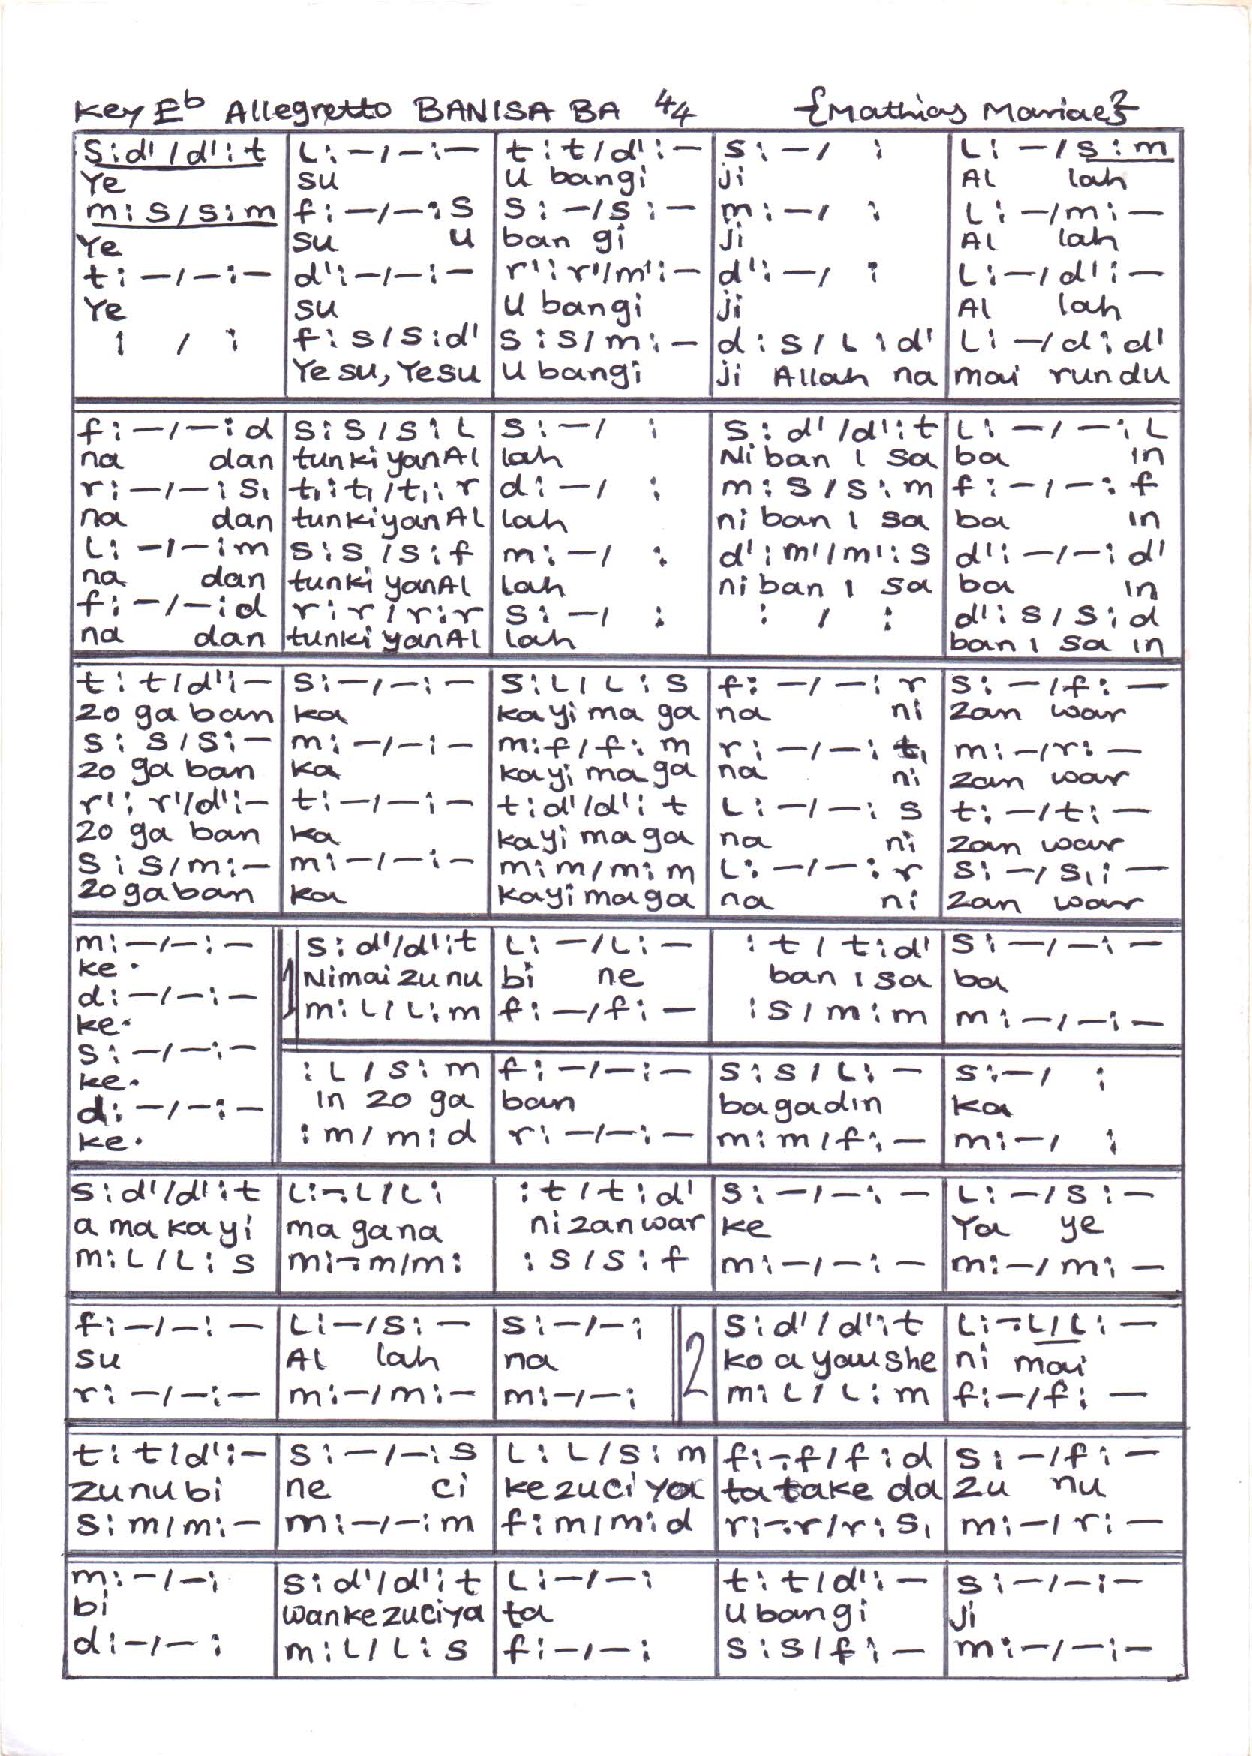 Key Eb Allegretto BANISA BA 4/4 {Mathias Mariae}
S:d'/d':t | L:-/-:- | t:t/d':- | S:-/ : | L:-/s:m
Ye | su | U bangi | ji | Al lah
m:s/s:m | f:-/-:s | S:-/s:- | m:-/ : | L:-/m:-
Ye | su u | ban gi | ji | Al lah
t:-/-:- | d':-/-:- | r':r'/m':- | d':-/ : | L:-/d':-
Ye | su | U bangi | ji | Al lah
: / : | f:s/s:d' | S:s/m:- | d:s/L:d' | L:-/d:d'
Yesu, Yesu | U bangi | ji Allah na | mai rundu
f:-/-:d | S:s/s:L | S:-/ : | S:d'/d':t | L:-/-:L
na dan | tunkiyan Al | lah | Ni ban i sa | ba in
r:-/-:s, | t,:t,/t,:r | d:-/ : | m:s/s:m | f:-/-:f
na dan | tunkiyan Al | lah | ni ban i sa | ba in
L:-/-:m | S:s/s:f | m:-/ : | d':m'/m':s | d':-/-:d'
na dan | tunkiyanAl | lah | ni ban i sa | ba in
f:-/-:d | r:r/r:r | S:-/ : | : / : | d':s/s:d
na dan | tunkiyanAl | lah | ban i sa in
t:t/d':- | S:-/-:- | S:L/L:s | f:-/-:r | S:-/f:-
zo ga ban | ka | kayi ma ga | na ni | zan war
S:s/s:- | m:-/-:- | m:f/f:m | r:-/-:t, | m:-/r:-
zo ga ban | ka | kayi ma ga | na ni | zan war
r':r'/d':- | t:-/-:- | t:d'/d':t | L:-/-:s | t:-/t:-
zo ga ban | ka | kayi maga | na ni | zan war
S:s/m:- | m:-/-:- | m:m/m:m | L:-/-:r | S:-/s,:-
zogaban | ka | kayi maga | na ni | zan war
m:-/-:- | 1 | S:d'/d':t | L:-/L:- | :t/t:d' | S:-/-:-
ke. | Nimai zunu | bi ne | ban i sa | ba
d:-/-:- | m:L/L:m | f:-/f:- | :s/m:m | m:-/-:-
ke.
S:-/-:- | :L/s:m | f:-/-:- | S:s/L:- | S:-/ :
ke. | in zo ga | ban | bagadin | ka
d:-/-:- | :m/m:d | r:-/-:- | m:m/f:- | m:-/ :
ke.
S:d'/d':t | L:-.L/L: | :t/t:d' | S:-/-:- | L:-/s:-
a ma kayi | ma gana | ni zanwar | ke | Ya ye
m:L/L:s | m:-.m/m: | :s/s:f | m:-/-:- | m:-/m:-
f:-/-:- | L:-/s:- | S:-/-: | 2 | S:d'/d':t | L:-.L/L:-
su | Al lah | na | ko a yaushe | ni mai
r:-/-:- | m:-/m:- | m:-/-: | m:L/L:m | f:-/f:-
t:t/d':- | S:-/-:s | L:L/s:m | f:-.f/f:d | S:-/f:-
zunubi | ne ci | ke zuciya | ta take da | zu nu
S:m/m:- | m:-/-:m | f:m/m:d | r:-.r/r:s, | m:-/r:-
m:-/-: | S:d'/d':t | L:-/-: | t:t/d':- | S:-/-:-
bi | wanke zuciya | ta | Ubangi | ji
d:-/-: | m:L/L:s | f:-/-: | S:s/f:- | m:-/-:-